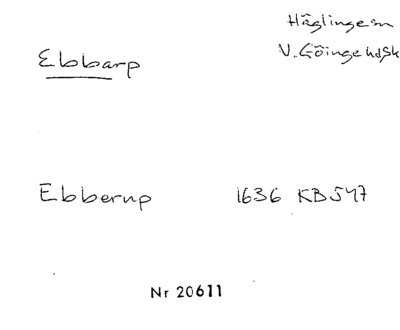 Häglinge sn
Ebbarp
V. Göinge hd Sk
Ebberup 1636 KB 547
Nr 20611